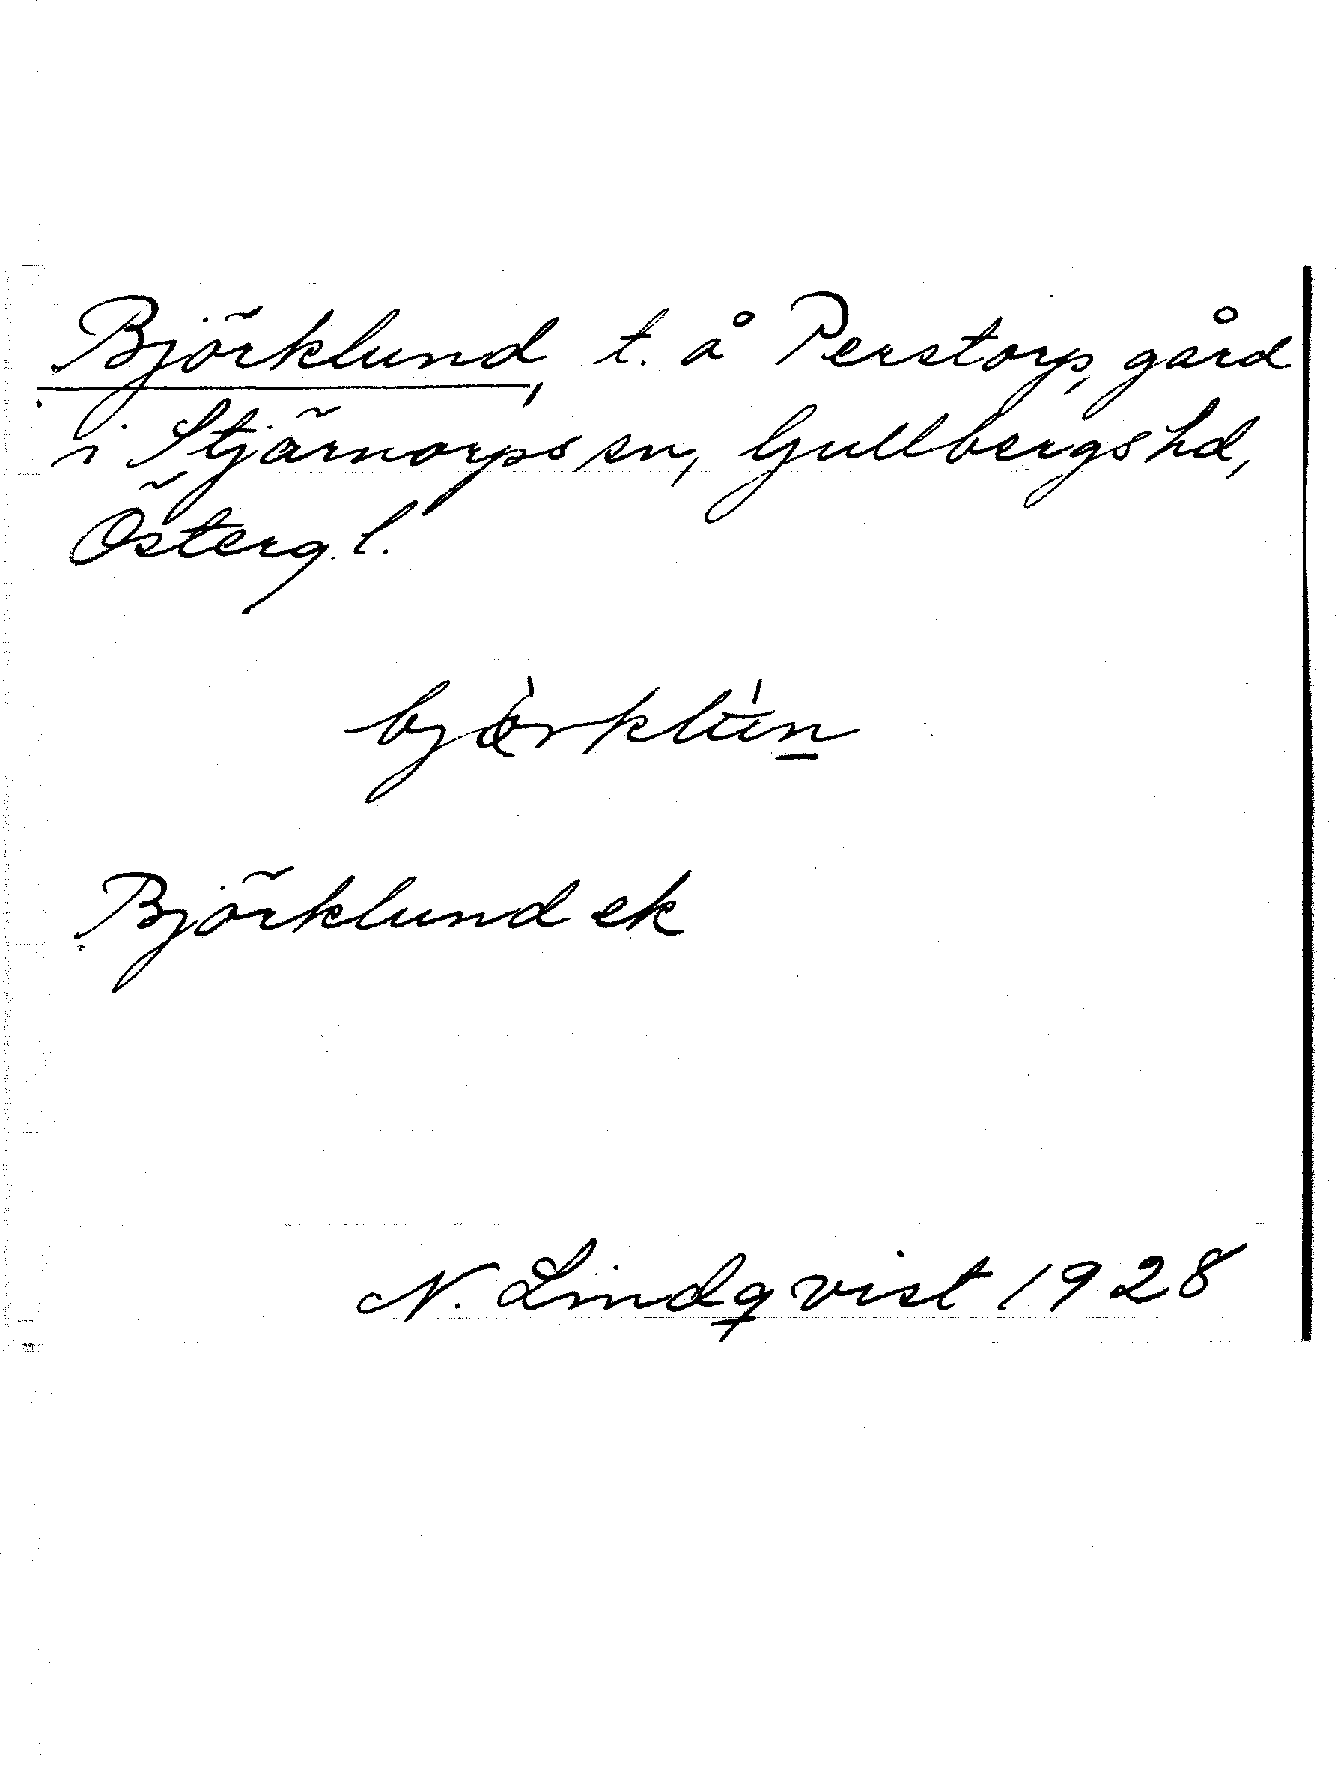 Björklund, t. å Perstorp, gård
i Stjärnorps sn, Gullbergs hd,
Östergl.
bjö̀rklún
Björklund ek
N. Lindqvist 1928